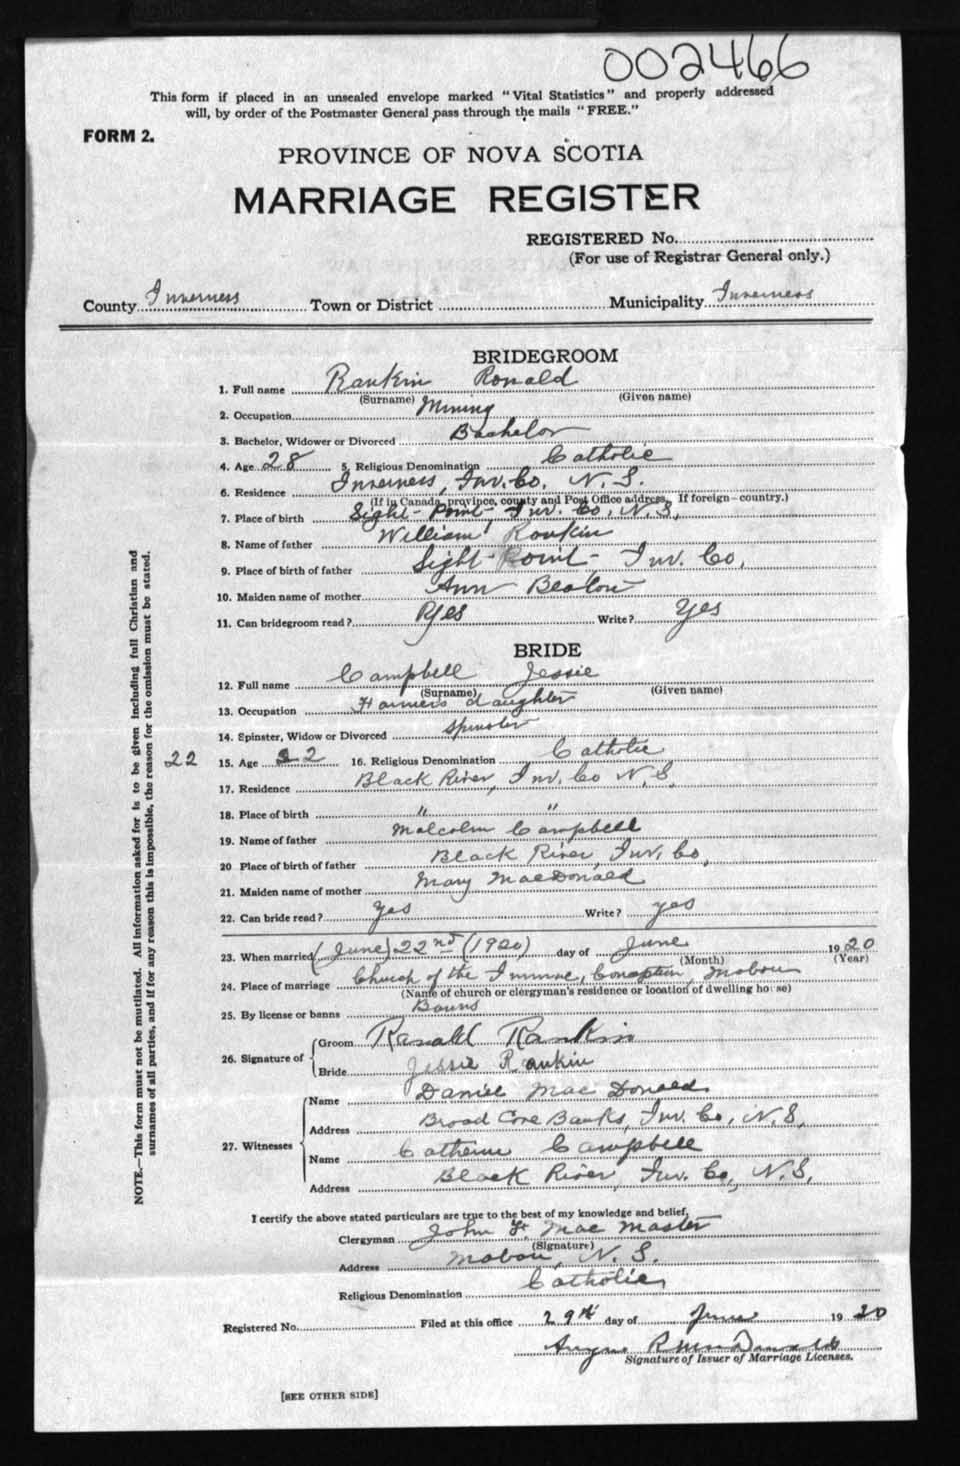 002466
This form if placed in an unsealed envelope marked "Vital Statistics" and properly addressed
will, by order of the Postmaster General pass through the mails "FREE."
FORM 2.
PROVINCE OF NOVA SCOTIA
MARRIAGE REGISTER
REGISTERED No.
(For use of Registrar General only.)
County Inverness Town or District Municipality Inverness
BRIDEGROOM
1. Full name Rankin Ronald
(Surname) (Given name)
2. Occupation Mining
3. Bachelor, Widower or Divorced Bachelor
4. Age 28 5. Religious Denomination Catholic
6. Residence Inverness, Inv. Co. N. S.
(If in Canada, province, county and Post Office address. If foreign—country.)
7. Place of birth Sight-Point-Inv. Co, N.S,
8. Name of father William Rankin
9. Place of birth of father Sight-Point-Inv. Co,
10. Maiden name of mother Ann Beaton
11. Can bridegroom read? Yes Write? Yes
BRIDE
12. Full name Campbell Jessie
(Surname) (Given name)
13. Occupation Farmers daughter
14. Spinster, Widow or Divorced Spinster
22 15. Age 22 16. Religious Denomination Catholic
17. Residence Black River, Inv. Co N.S,
18. Place of birth " "
19. Name of father Malcolm Campbell
20 Place of birth of father Black River, Inv. Co,
21. Maiden name of mother Mary MacDonald
22. Can bride read? Yes Write? yes
23. When married (June) 22nd (1920) day of June 1920
(Month) (Year)
24. Place of marriage Church of the Immac, Conception, Mabou
(Name of church or clergyman's residence or location of dwelling house)
25. By license or banns Banns
26. Signature of Groom Ranald Rankin
Bride Jessie Rankin
27. Witnesses Name Daniel MacDonald
Address Broad Cove Banks, Inv. Co, N.S,
Name Catherine Campbell
Address Black River, Inv. Co, N.S,
I certify the above stated particulars are true to the best of my knowledge and belief,
Clergyman John F. MacMaster
(Signature)
Address Mabou, N. S.
Religious Denomination Catholic
Registered No. Filed at this office 29th day of June 1920
Angus MacDonald
Signature of Issuer of Marriage Licenses.
[SEE OTHER SIDE]
NOTE.—This form must not be mutilated. All information asked for is to be given including full Christian and
surnames of all parties, and if for any reason this is impossible, the reason for the omission must be stated.